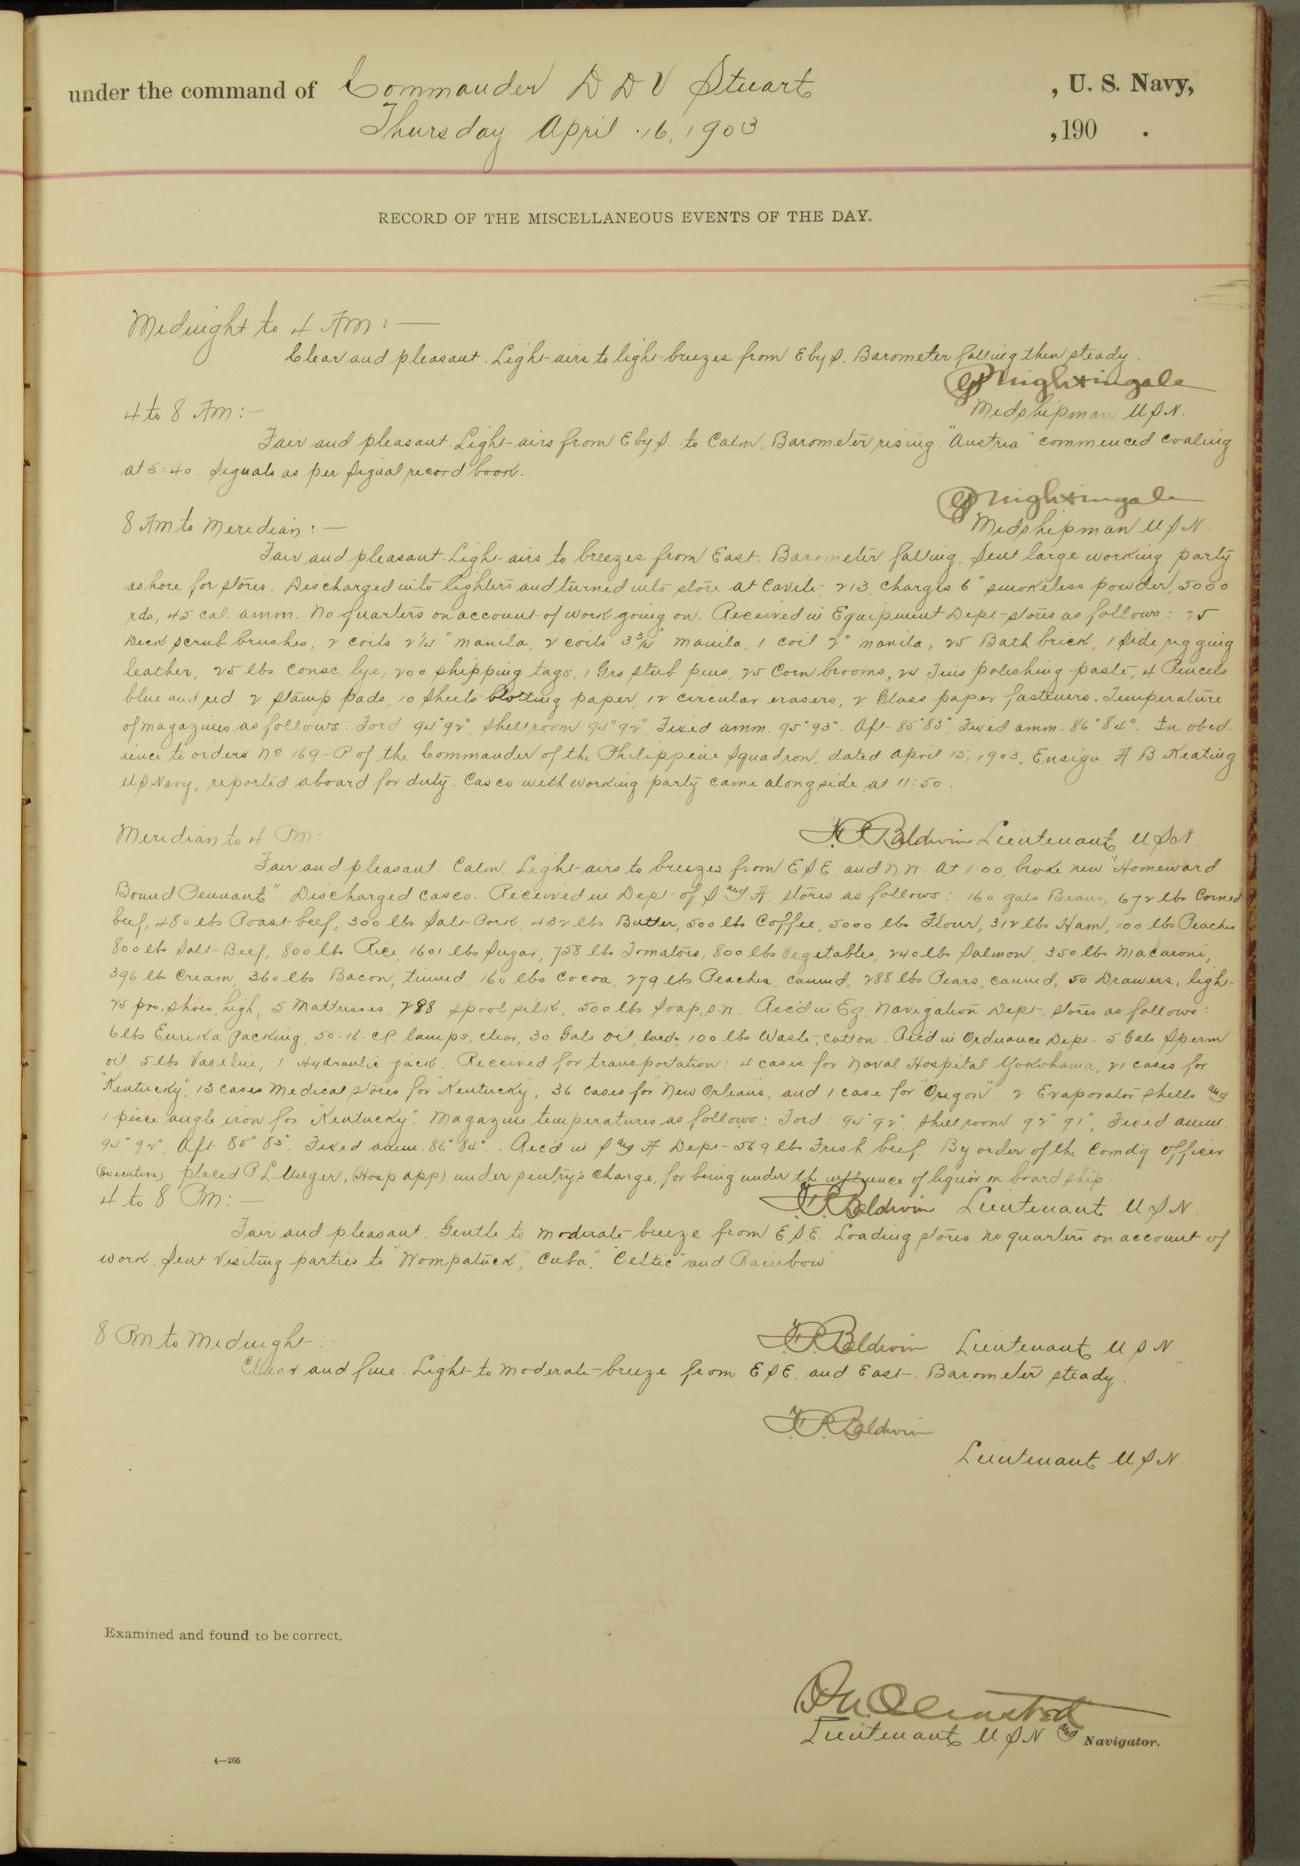 under the command of Commander D D V Stuart , U. S. Navy,
Thursday April 16, 1903 , 190 .
RECORD OF THE MISCELLANEOUS EVENTS OF THE DAY.
Midnight to 4 AM: —
Clear and pleasant. Light airs to light breezes from E by S. Barometer falling then steady.
Nightingale
Midshipman U S N.
4 to 8 AM: —
Fair and pleasant. Light airs from E by S. to Calm. Barometer rising. "Austria" commenced coaling
at 5:40. Signals as per Signal record book.
Nightingale
8 AM to Meridian: —
Midshipman U S N.
Fair and pleasant. Light airs to breezes from East. Barometer falling. Sent large working party
ashore for stores. Discharged into lighters and turned into store at Cavite, 213 charges 6" smokeless powder, 5000
rds, 45 cal. amm. No quarters on account of work going on. Received in Equipment Dept stores as follows: 25
Deck scrub brushes, 2 coils 2 1/4" manila, 2 coils 3 3/4" manila, 1 coil 2" manila, 25 Bath brick, 1 Side rigging
leather, 25 lbs Conc. lye, 200 shipping tags, 1 Gro stub pens, 25 Corn brooms, 24 Tins polishing paste, 4 Pencils
blue and red, 2 Stamp pads, 10 Sheets blotting paper, 12 circular erasers, 2 Glass paper fasteners. Temperature
of magazines as follows: Ford 94° 92° Shellroom 94° 92°, Fixed amm. 95° 93°. Aft 85° 83°, Fixed amm. 86° 84°. In obed-
ience to orders No 169-P of the Commander of the Philippine Squadron, dated April 15, 1903, Ensign A B Keating
U S Navy, reported aboard for duty. Casco with working party came alongside at 11:50.
Meridian to 4 PM:
F P Baldwin Lieutenant U S N.
Fair and pleasant. Calm. Light airs to breezes from E S E. and N.W. At 1:00, broke new "Homeward
Bound Pennant". Discharged casco. Received in Dept of S and A. stores as follows: 160 gals Beans, 672 lbs Corned
beef, 480 lbs Roast beef, 300 lbs Salt Pork, 432 lbs Butter, 500 lbs Coffee, 5000 lbs Flour, 312 lbs Ham, 100 lbs Peaches
800 lbs Salt Beef, 800 lbs Rice, 1601 lbs Sugar, 758 lbs Tomatoes, 800 lbs Vegetables, 240 lbs Salmon, 350 lbs Macaroni,
396 lbs Cream, 360 lbs Bacon, tinned, 160 lbs Cocoa, 279 lbs Peaches, canned, 288 lbs Pears, canned, 50 Drawers, light
25 prs. shoes, high, 5 Mattresses, 288 spool silk, 500 lbs Soap, s.w. Rec'd in Eq. Navigation Dept. stores as follows:
6 lbs Eureka Packing, 50-16-CP lamps, clear, 30 Gals oil, lard, 100 lbs Waste, cotton. Rec'd in Ordnance Dept. 5 Gals Sperm
oil, 5 lbs Vaseline, 1 Hydraulic jack. Received for transportation: 4 cases for Naval Hospital Yokohama, 21 cases for
"Kentucky", 13 cases Medical stores for "Kentucky", 36 cases for New Orleans, and 1 case for "Oregon", 2 Evaporator shells and
1 piece angle iron for "Kentucky". Magazine temperatures as follows: Ford 94° 92°, Shellroom 92° 91°, Fixed amm.
94° 92°. Aft 85° 83°. Fixed amm. 86° 84°. Rec'd in S and A Dept 569 lbs Fresh beef. By order of the Comdg Officer
(Executive) placed P L (Hosp app) under sentry's charge, for being under the influence of liquor on board ship.
4 to 8 PM: —
F P Baldwin Lieutenant U S N.
Fair and pleasant. Gentle to moderate breeze from E S E. Loading stores, no quarters on account of
work. Sent visiting parties to "Wompatuck", "Cuba", "Celtic" and Rainbow
8 PM to Midnight: —
F P Baldwin Lieutenant U S N
Clear and fine. Light to moderate breeze from E S E. and East. Barometer steady.
F P Baldwin
Lieutenant U S N.
Examined and found to be correct.
Olmsted
Lieutenant U S N and Navigator.
4—266